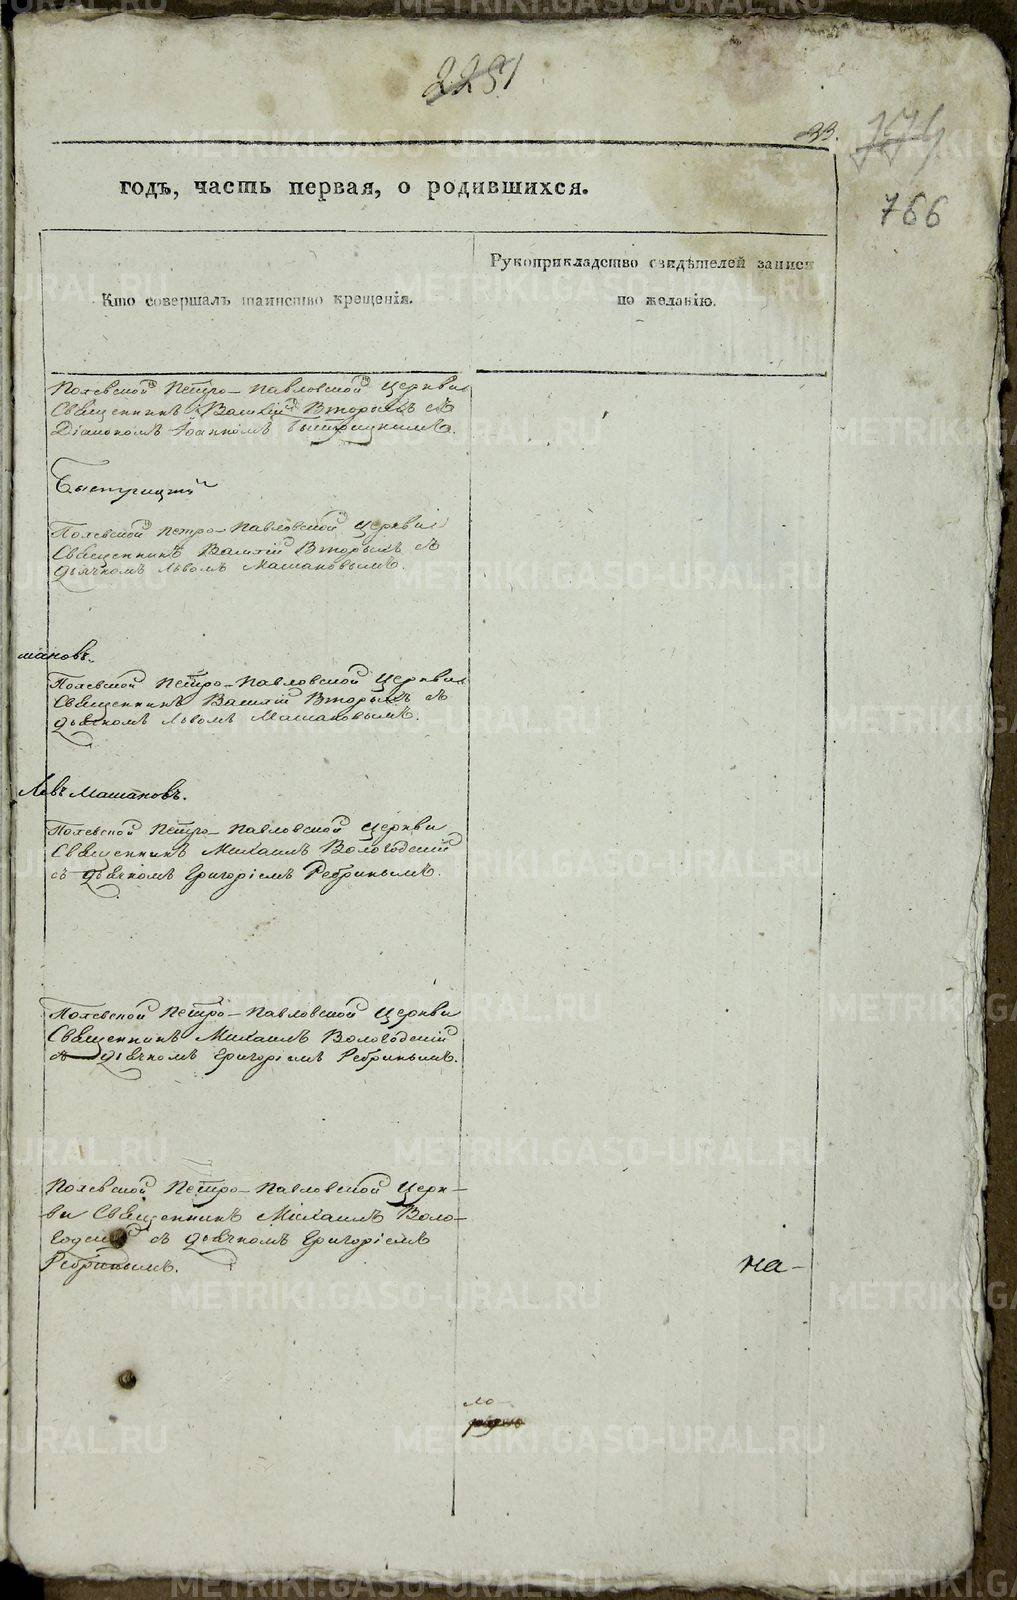 2251
33.
774
766
годъ, часть первая, о родившихся.
Кто совершалъ таинство крещенія.
Рукоприкладство свидѣтелей записи
по желанію.
Полевской Петро-Павловской Церкви
Священникъ Василій Вторыхъ съ
Діакономъ Іоанномъ Быстрицкимъ.
Быстрицкій
Полевской Петро-Павловской Церкви
Священникъ Василій Вторыхъ съ
Дьячкомъ Львомъ Машановымъ.
шановъ.
Полевской Петро-Павловской Церкви
Священникъ Василій Вторыхъ съ
Дьячкомъ Львомъ Машановымъ.
Левъ Машановъ.
Полевской Петро-Павловской Церкви
Священникъ Михаилъ Вологодскій
съ Дьячкомъ Григоріемъ Ребринымъ.
Полевской Петро-Павловской Церкви
Священникъ Михаилъ Вологодскій
съ Дьячкомъ Григоріемъ Ребринымъ.
Полевской Петро-Павловской Церк-
ви Священникъ Михаилъ Воло-
годскій съ Дьячкомъ Григоріемъ
Ребринымъ.
на-
ло-
METRIKI.GASO-URAL.RU